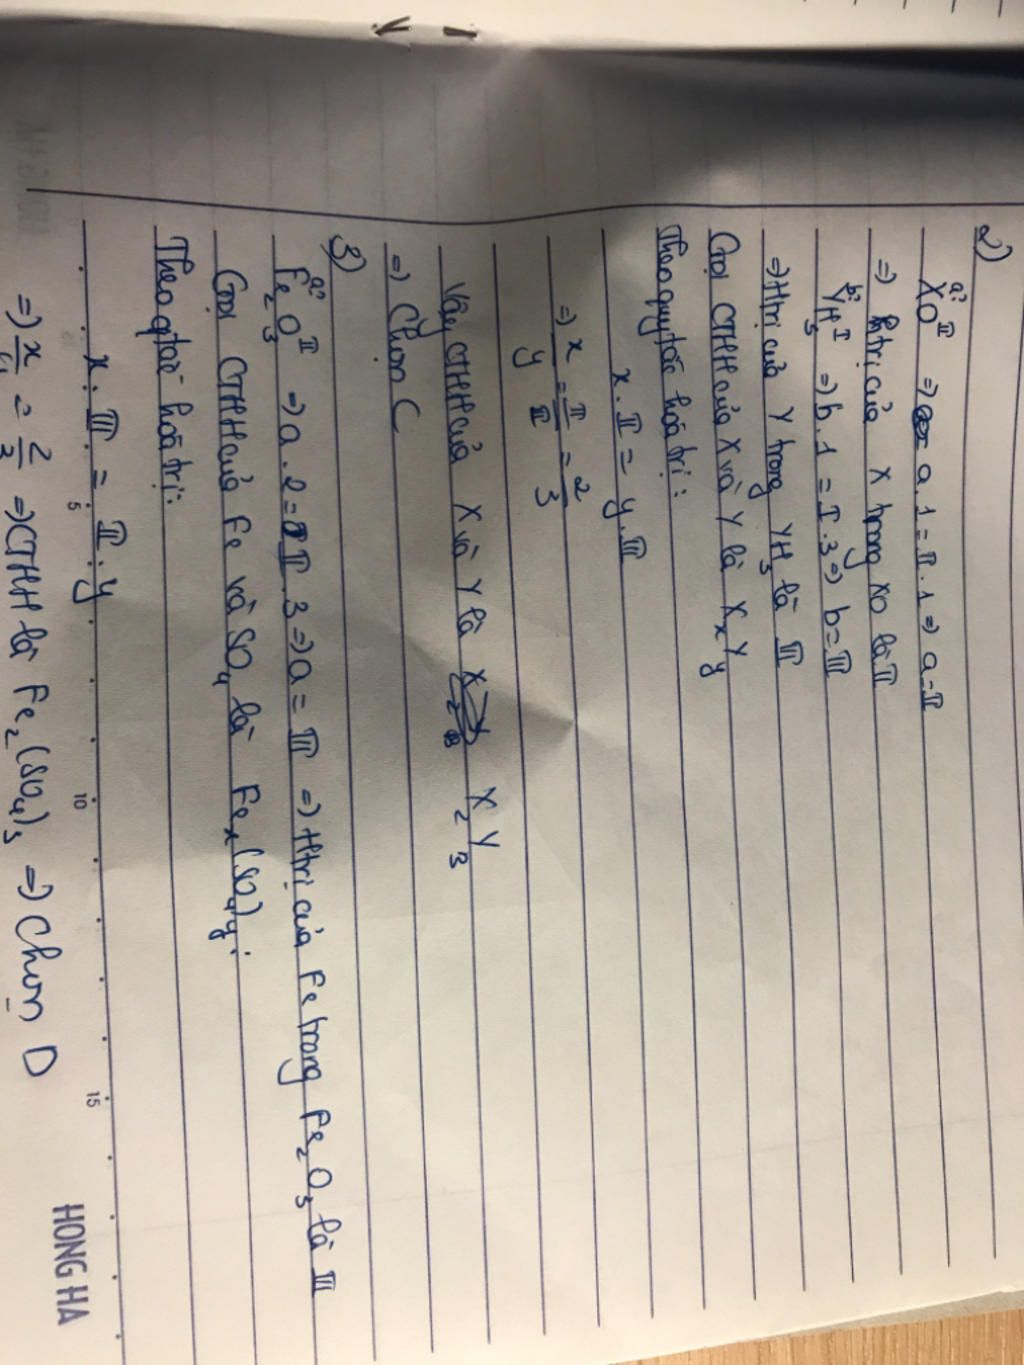 2)
a? II
XO => a.1 = II.1 => a = II
=> htrị của X trong XO là II
b? I
YH3 => b.1 = I.3 => b = III
=> Htrị của Y trong YH3 là III
Gọi CTHH của X và Y là XxYy
Theo quy tắc hoá trị:
x.II = y.III
=> x/y = III/II = 2/3
Vậy CTHH của X và Y là X2Y3
=> Chọn C
3)
a? II
Fe2O3 => a.2 = II.3 => a = III => Htrị của Fe trong Fe2O3 là III
Gọi CTHH của Fe và SO4 là Fex(SO4)y:
Theo qtắc hoá trị:
x.III = II.y
=> x/y = 2/3 => CTHH là Fe2(SO4)3 => Chọn D
5 10 15
HONG HA